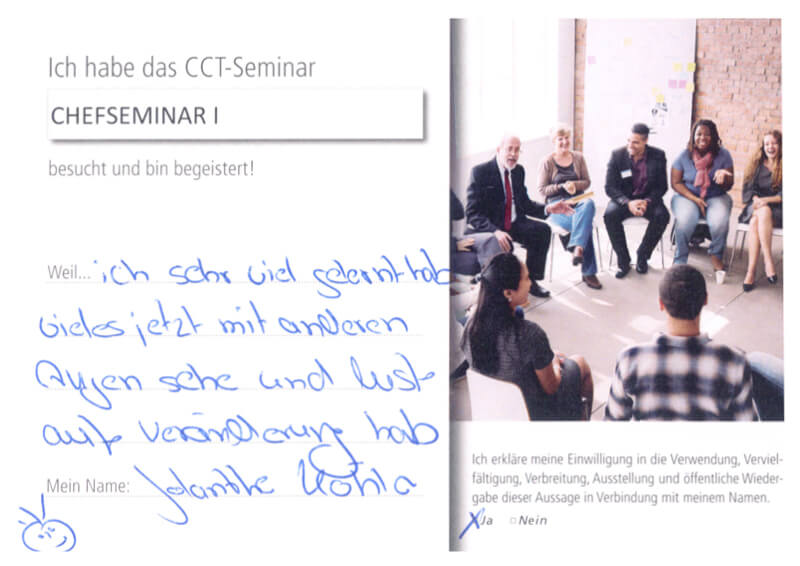 Ich habe das CCT-Seminar
CHEFSEMINAR I
besucht und bin begeistert!
Weil... ich sehr viel gelernt hab
vieles jetzt mit anderen
Augen sehe und Lust
auf Veränderung hab
Mein Name: Jolanthe
Ich erkläre meine Einwilligung in die Verwendung, Verviel-
fältigung, Verbreitung, Ausstellung und öffentliche Wieder-
gabe dieser Aussage in Verbindung mit meinem Namen.
X Ja □ Nein